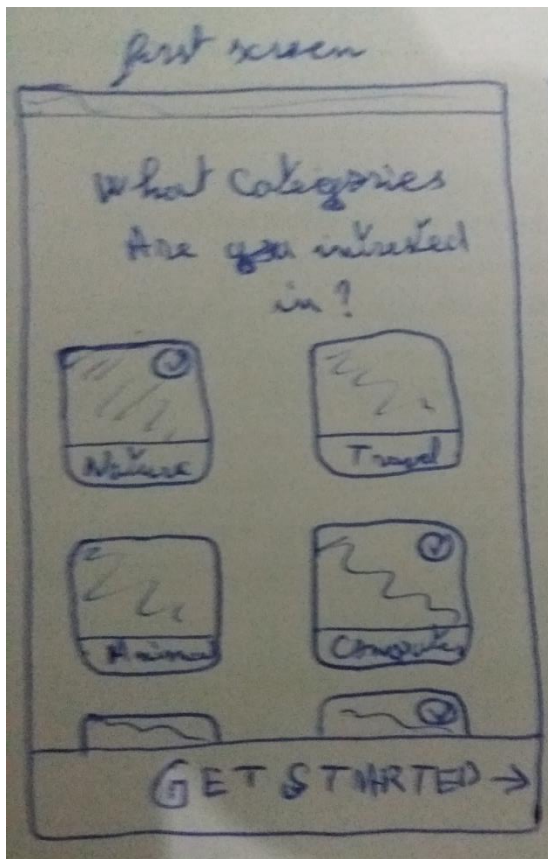 first screen
What Categories
Are you intrested
in?
Nature
Travel
Animal
Computer
GET STARTED →